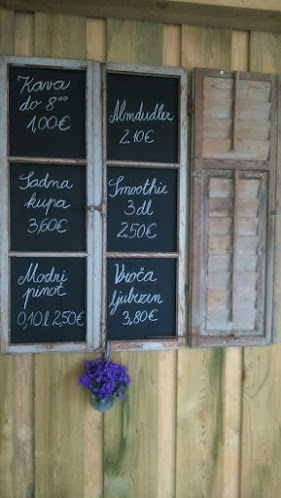 Kava
do 8⁰⁰
1,00€
Sadna
kupa
3,60€
Modri
pinot
0,10l 2,50€
Almdudler
2,10€
Smoothie
3 dl
2,50€
Vroča
ljubezen
3,80€